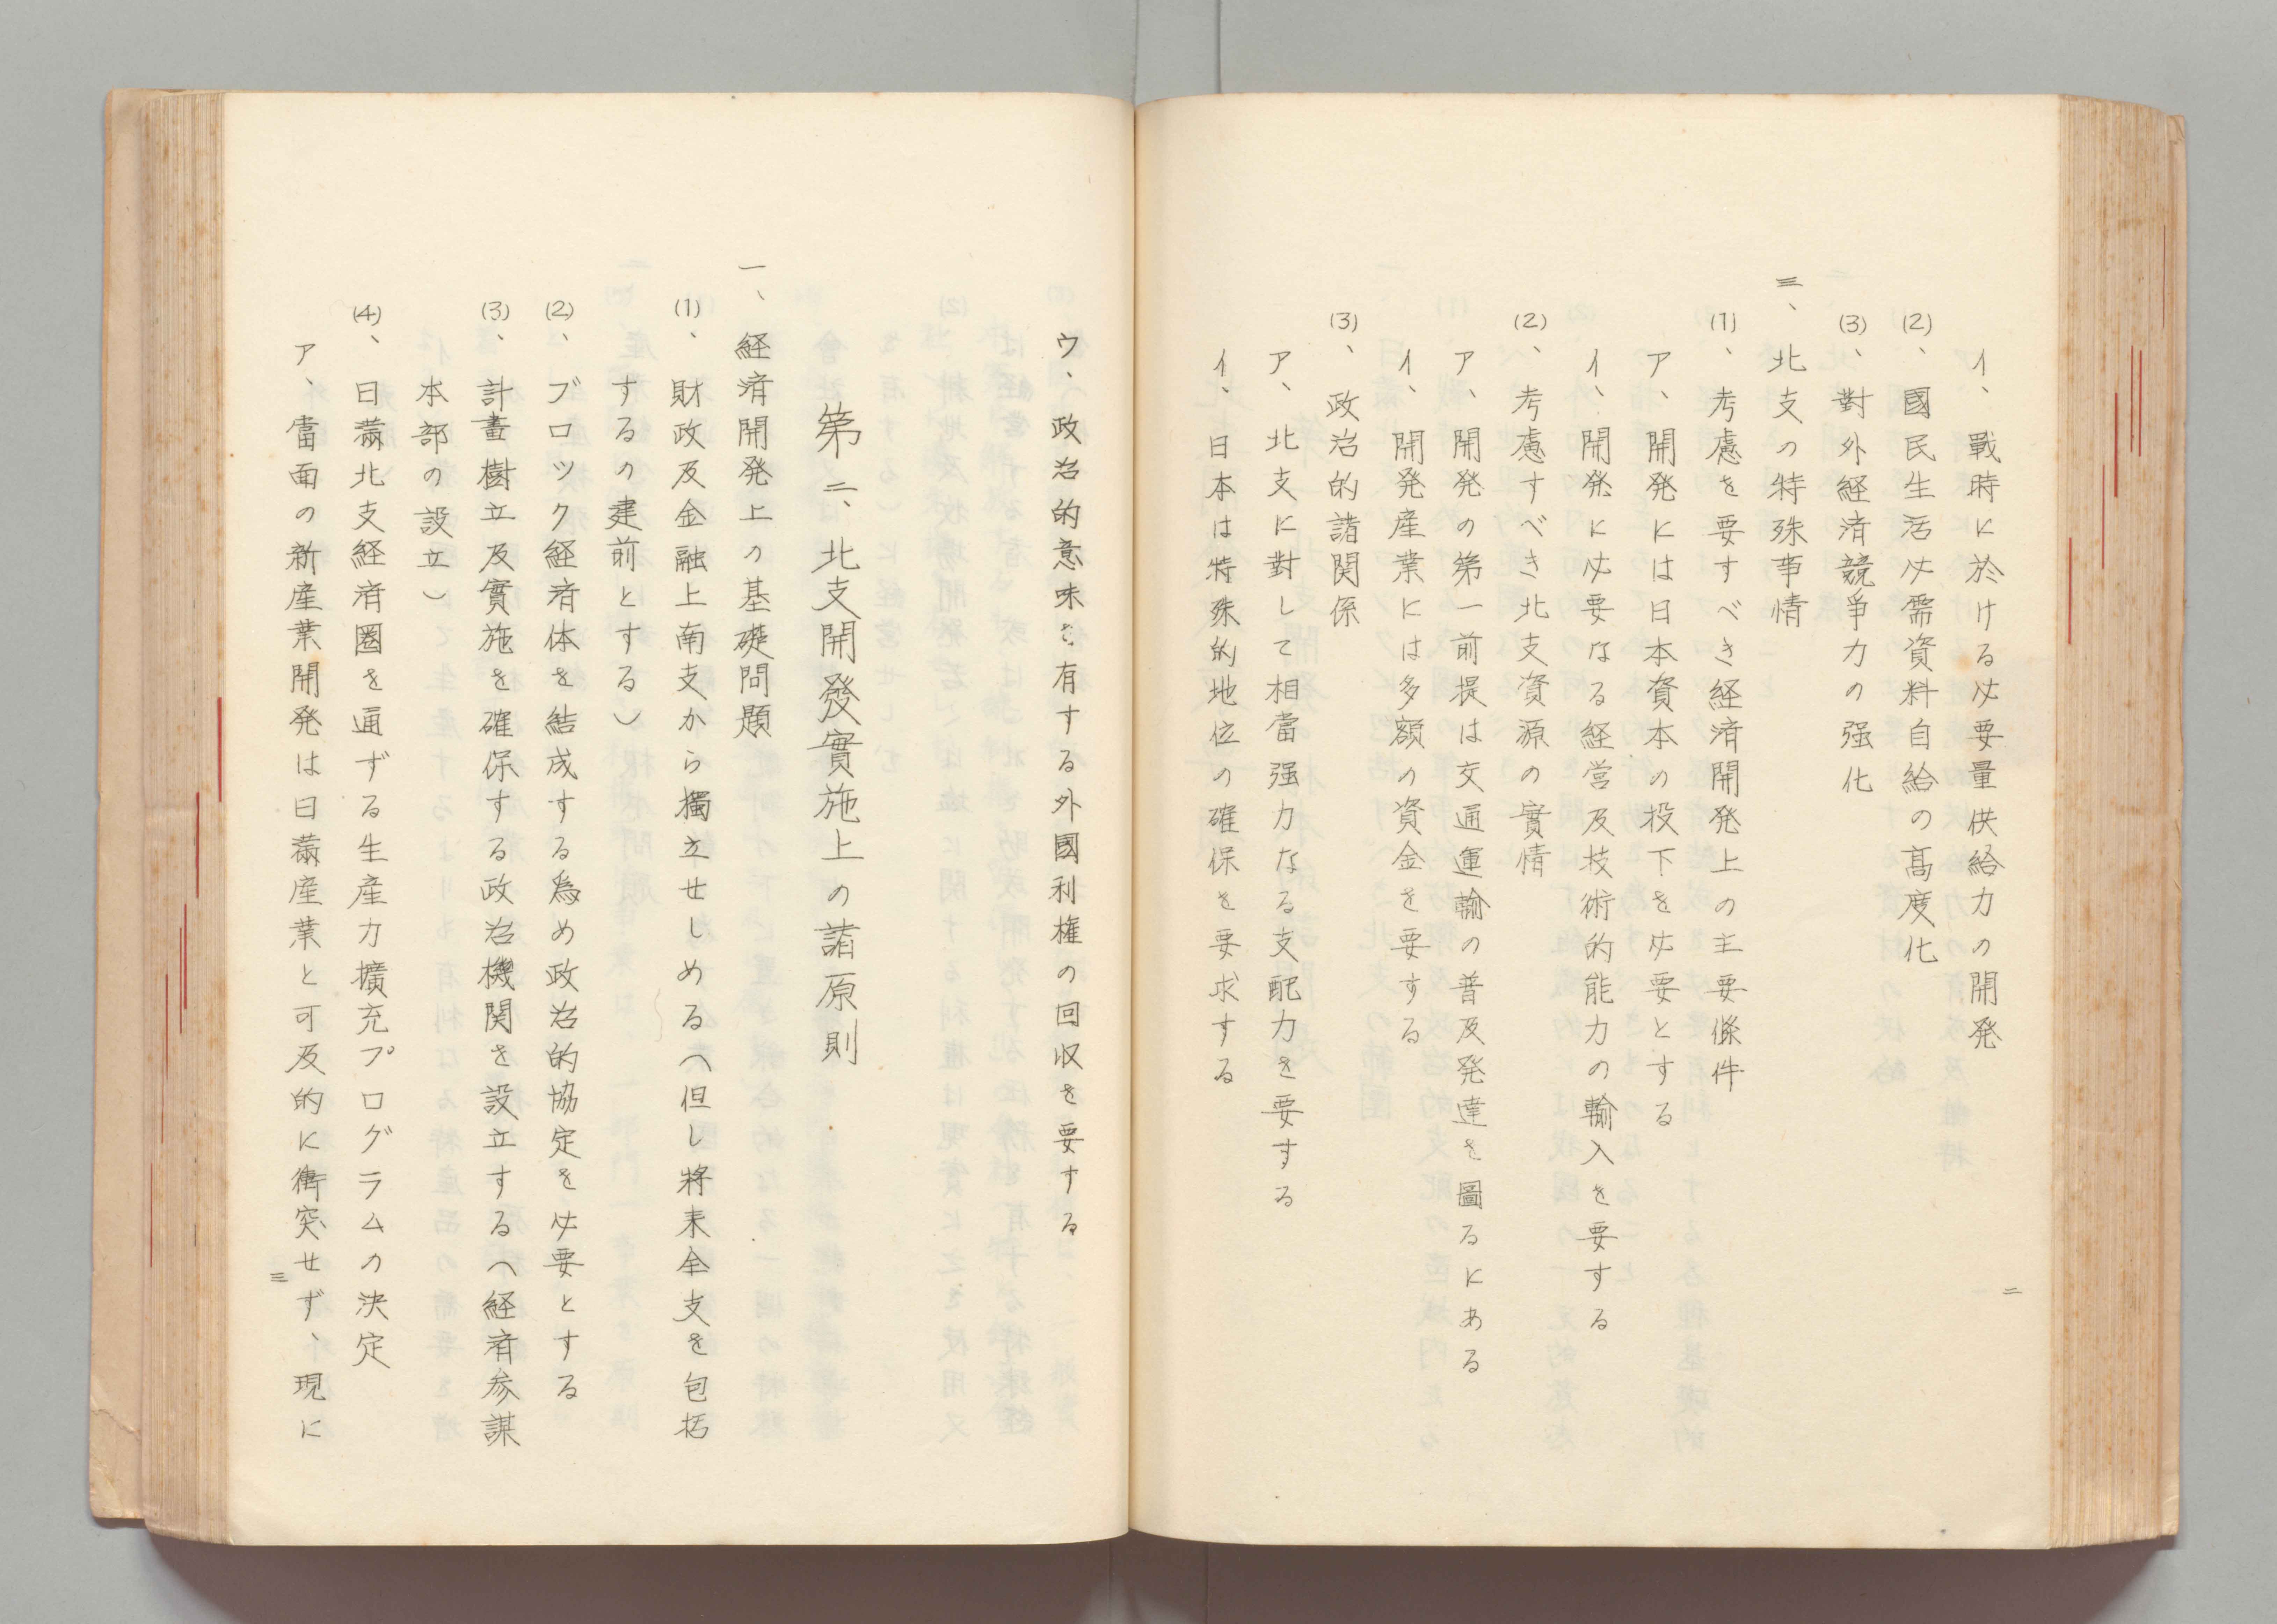 イ、戰時に於ける必要量供給力の開発
(2)、國民生活必需資料自給の高度化
(3)、對外経済競爭力の强化
三、北支の特殊事情
(1)、考慮を要すべき経済開発上の主要條件
ア、開発には日本資本の投下を必要とする
イ、開発に必要なる経営及技術的能力の輸入を要する
(2)、考慮すべき北支資源の實情
ア、開発の第一前提は交通運輸の普及発達を圖るにある
イ、開発産業には多額の資金を要する
(3)、政治的諸関係
ア、北支に對して相當强力なる支配力を要する
イ、日本は特殊的地位の確保を要求する
二
ウ、政治的意味を有する外國利権の回収を要する
第二、北支開發實施上の諸原則
一、経済開発上の基礎問題
(1)、財政及金融上南支から獨立せしめる(但し將来全支を包括
するの建前とする)
(2)、ブロック経済体を結成する為め政治的協定を必要とする
(3)、計畫樹立及實施を確保する政治機関を設立する(経済参謀
本部の設立)
(4)、日満北支経済圏を通ずる生産力擴充プログラムの決定
ア、當面の新産業開発は日満産業と可及的に衝突せず、現に
三